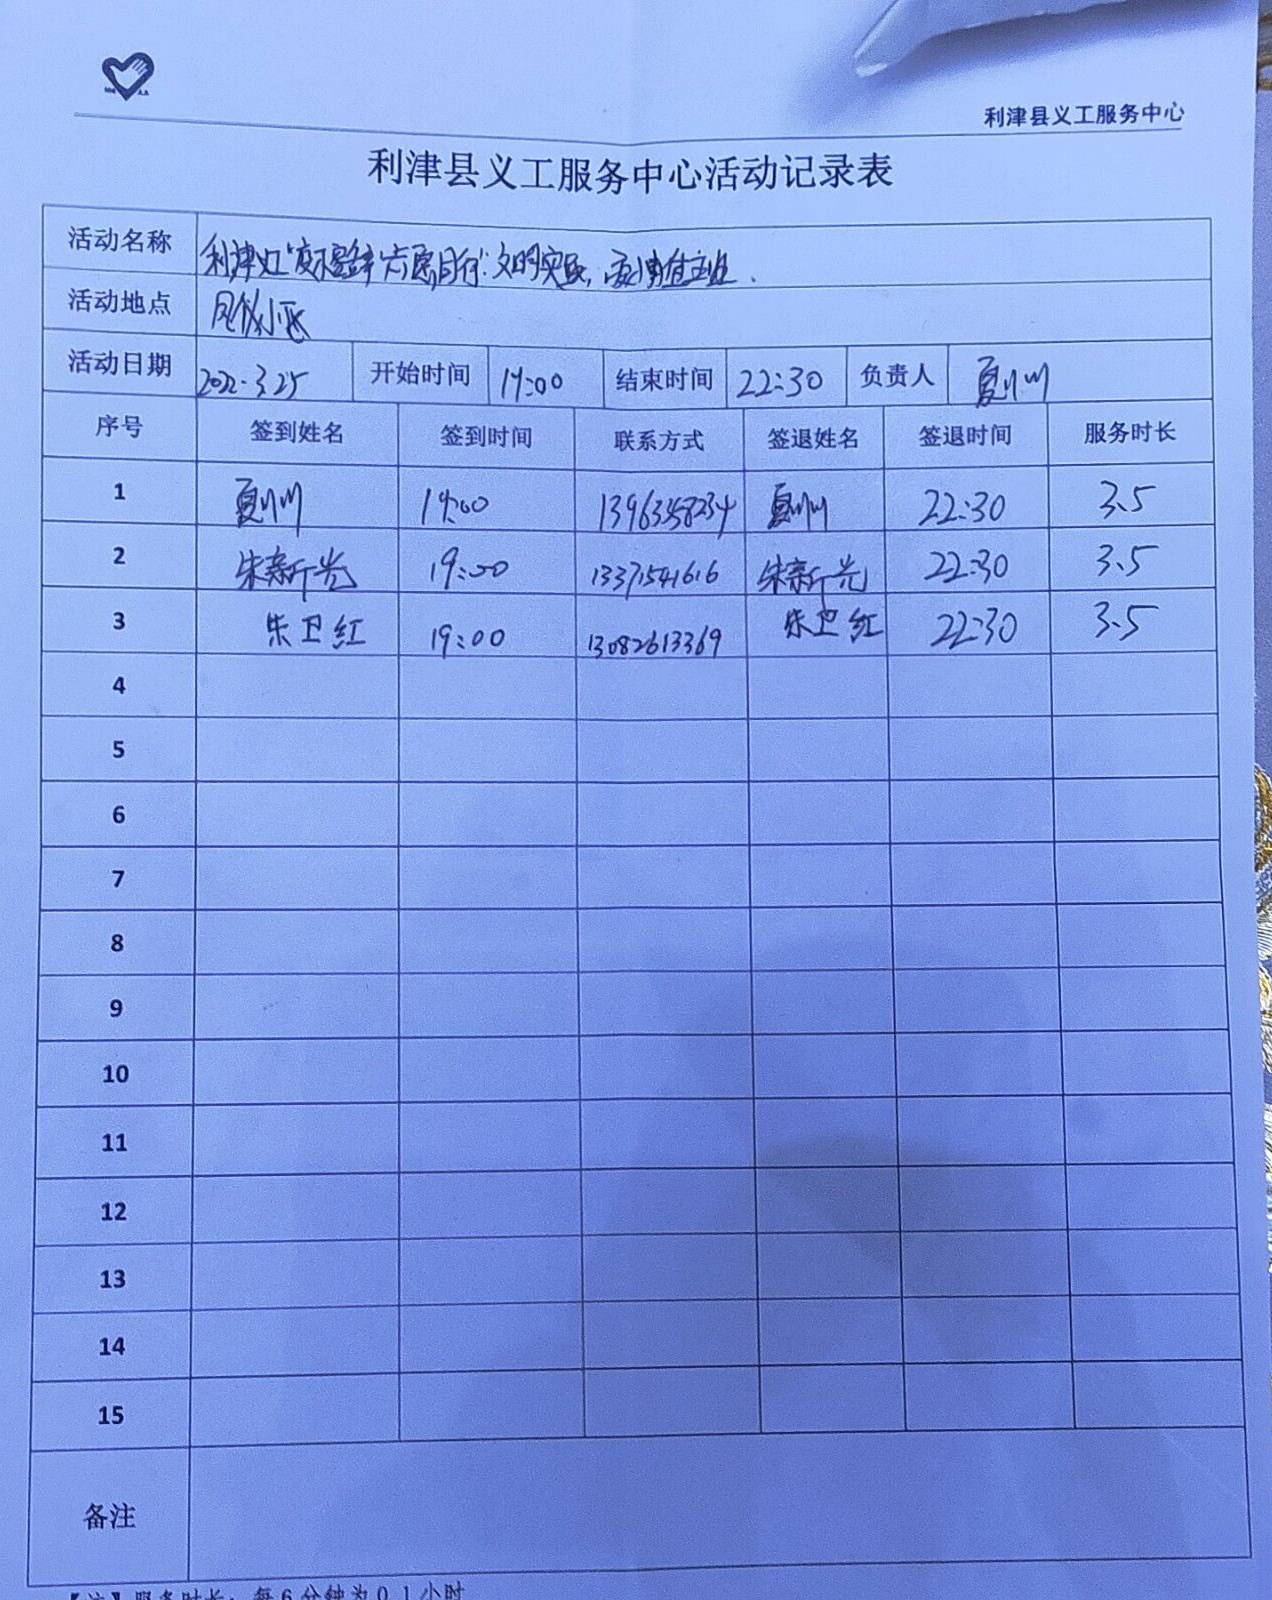 利津县义工服务中心
利津县义工服务中心活动记录表
活动名称 利津 "夜不 "志愿同行":文明实践,
活动地点 凤 小区
活动日期 2022.3.25 开始时间 19:00 结束时间 22:30 负责人 夏
序号 签到姓名 签到时间 联系方式 签退姓名 签退时间 服务时长
1 夏 19:00 13963358234 夏 22:30 3.5
2 朱新光 19:00 13371541616 朱新光 22:30 3.5
3 朱卫红 19:00 13082613369 朱卫红 22:30 3.5
4
5
6
7
8
9
10
11
12
13
14
15
备注
【注】服务时长:每6分钟为0.1小时